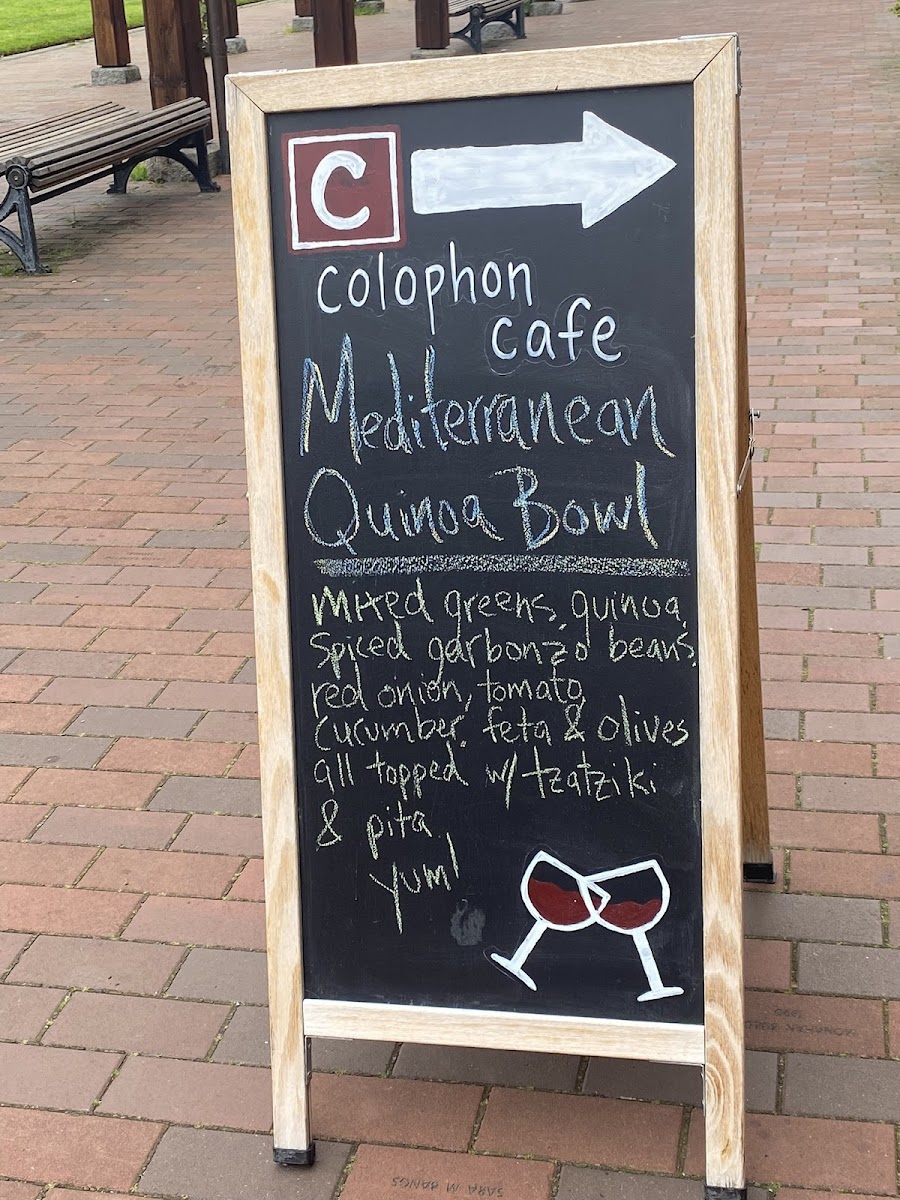 C
colophon
cafe
Mediterranean
Quinoa Bowl
Mixed greens, quinoa,
spiced garbonzo beans,
red onion, tomato,
cucumber, feta & olives
all topped w/ tzatziki
& pita
yum!
SARA M BANGS